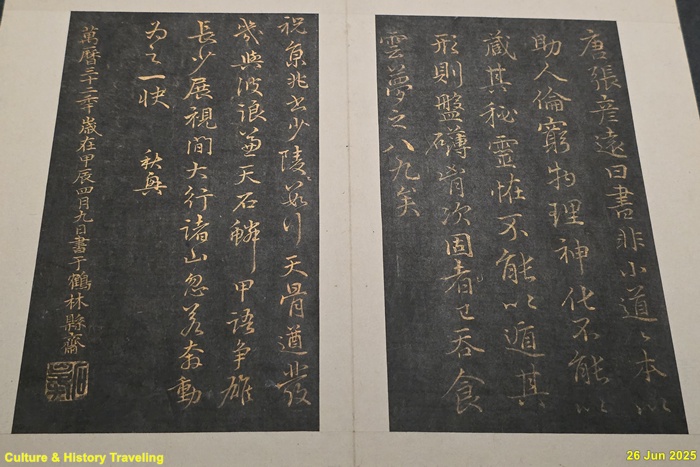 唐張彥遠曰書非小道〻本以
助人倫窮物理神化不能以
藏其秘靈怪不能以遁其
形則盤礴胷次固者已吞食
雲夢之八九矣
祝京兆書少陵 天骨遒發
幾與波浪兼天石鱗甲語爭雄
長少展視間太行諸山忽若奔動
為之一快 秋興
萬曆三十二年歲在甲辰四月九日書于鶴林縣齋
Culture & History Traveling
26 Jun 2025